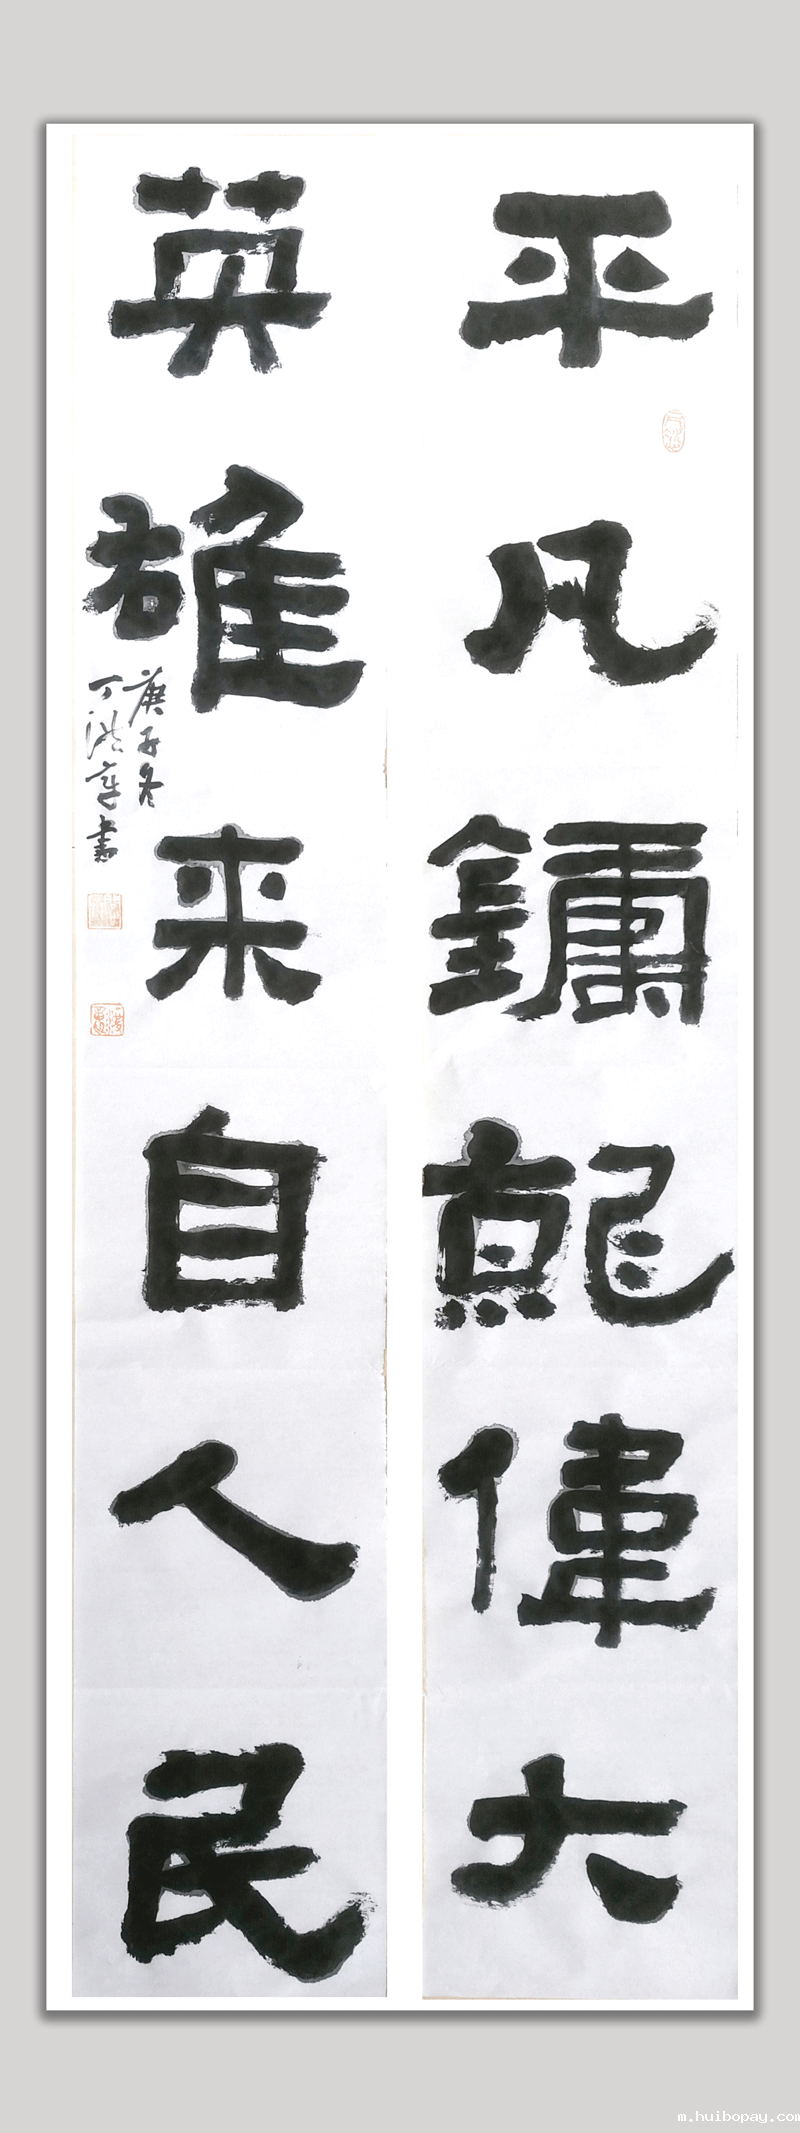 平凡鑄就偉大
英雄来自人民
庚子冬
丁洪章書
m.huibopay.com